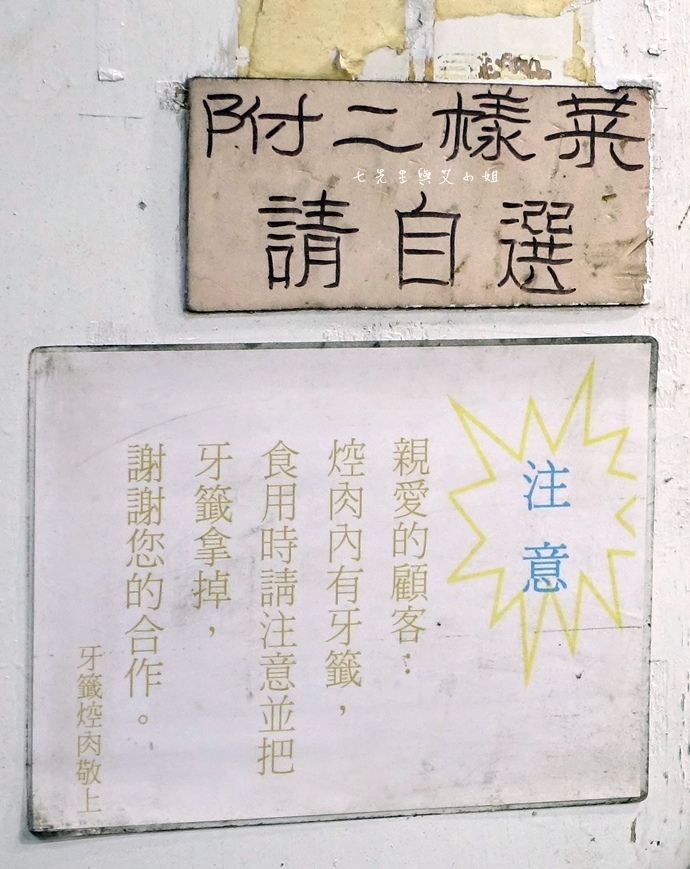 附二樣菜
七先生與艾小姐
請自選
注意
親愛的顧客：
焢肉內有牙籤，
食用時請注意並把
牙籤拿掉，
謝謝您的合作。
牙籤焢肉敬上